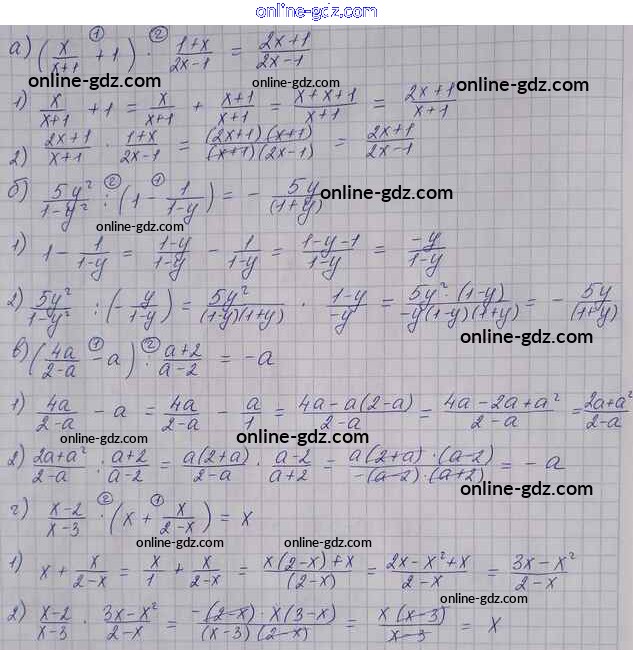 online-gdz.com
а) (x/(x+1) + 1) · (1+x)/(2x-1) = (2x+1)/(2x-1)
① ②
online-gdz.com
1) x/(x+1) + 1 = x/(x+1) + (x+1)/(x+1) = (x+x+1)/(x+1) = (2x+1)/(x+1)
online-gdz.com online-gdz.com
2) (2x+1)/(x+1) · (1+x)/(2x-1) = ((2x+1)(x+1))/((x+1)(2x-1)) = (2x+1)/(2x-1)
б) 5y²/(1-y²) : (1 - 1/(1-y)) = - 5y/(1+y)
② ①
online-gdz.com
online-gdz.com
1) 1 - 1/(1-y) = (1-y)/(1-y) - 1/(1-y) = (1-y-1)/(1-y) = -y/(1-y)
online-gdz.com
2) 5y²/(1-y²) : (- y/(1-y)) = 5y²/((1-y)(1+y)) · (1-y)/-y = (5y² · (1-y))/(-y(1-y)(1+y)) = - 5y/(1+y)
online-gdz.com
в) (4a/(2-a) - a) : (a+2)/(a-2) = -a
① ②
online-gdz.com
1) 4a/(2-a) - a = 4a/(2-a) - a/1 = (4a-a(2-a))/(2-a) = (4a-2a+a²)/(2-a) = (2a+a²)/(2-a)
online-gdz.com online-gdz.com
2) (2a+a²)/(2-a) : (a+2)/(a-2) = a(2+a)/(2-a) · (a-2)/(a+2) = (a(2+a)·(a-2))/(-(a-2)·(a+2)) = -a
online-gdz.com
г) (x-2)/(x-3) · (x + x/(2-x)) = x
② ①
online-gdz.com online-gdz.com
1) x + x/(2-x) = x/1 + x/(2-x) = (x(2-x)+x)/(2-x) = (2x-x²+x)/(2-x) = (3x-x²)/(2-x)
online-gdz.com
2) (x-2)/(x-3) · (3x-x²)/(2-x) = (-(2-x)·x(3-x))/((x-3)(2-x)) = x(x-3)/(x-3) = x
online-gdz.com